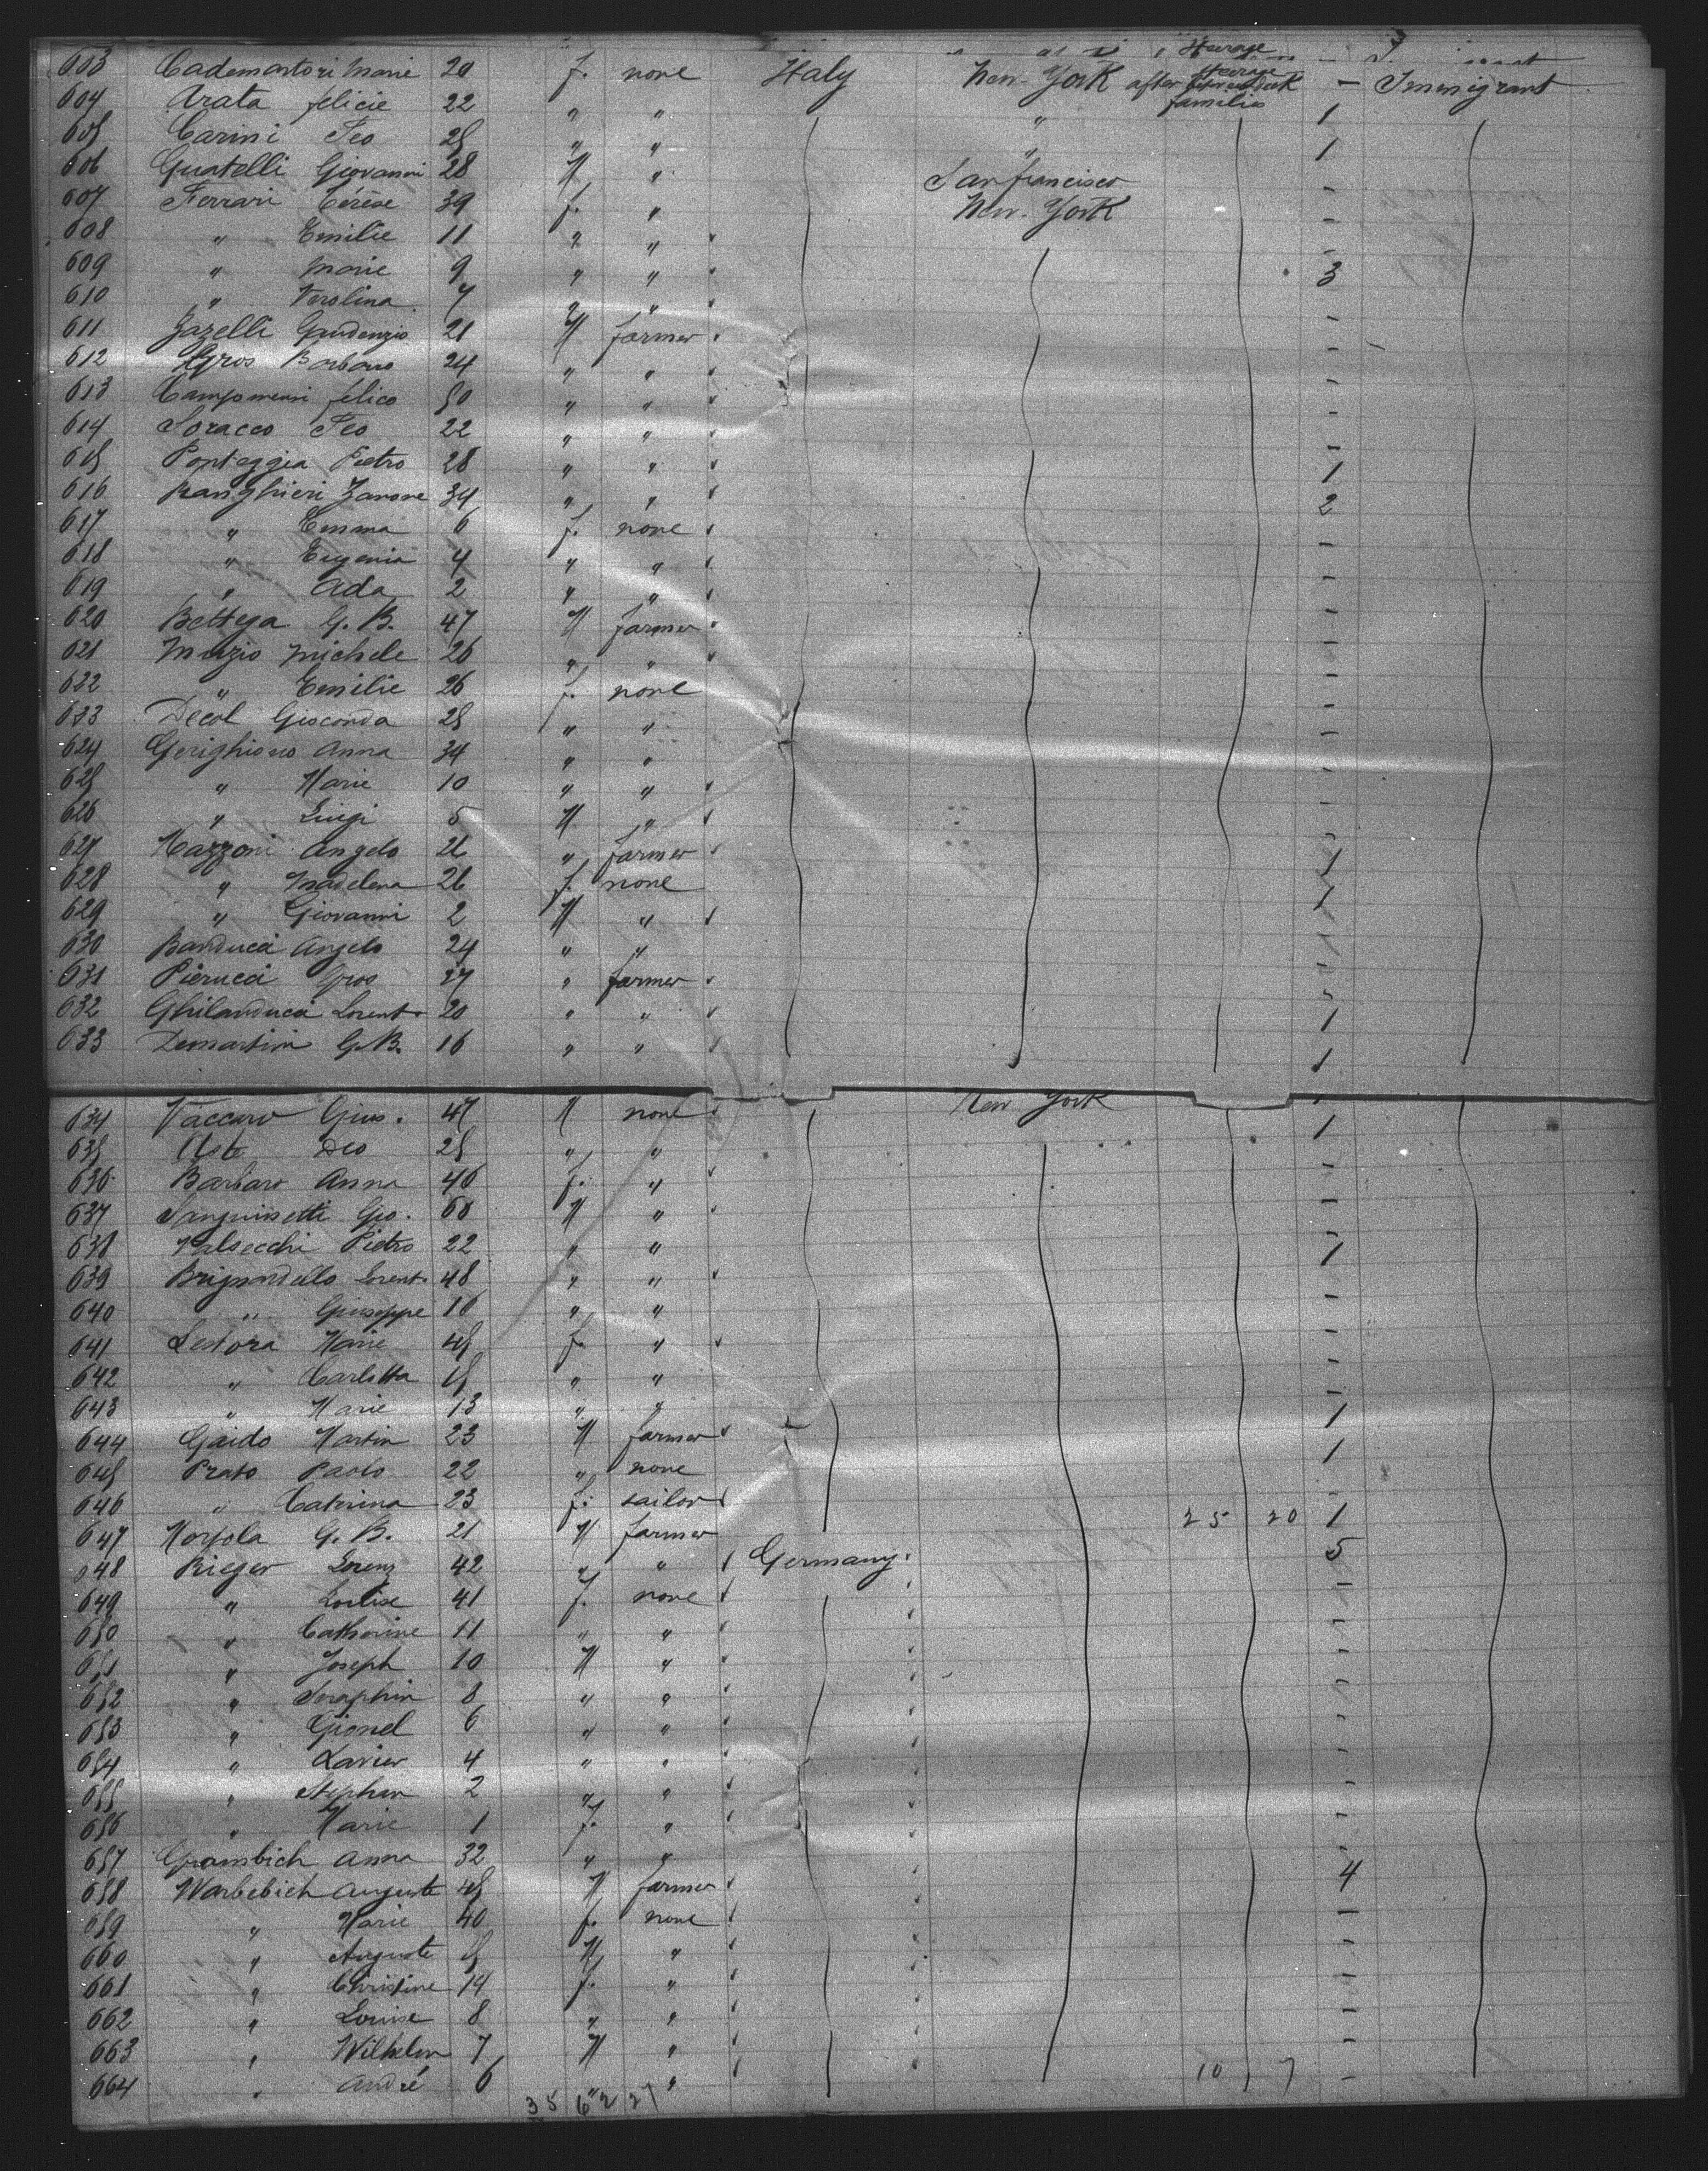 603 Cademartori Marie 20 f. none Italy New-York after Steerage families — Immigrant
604 Arata felicie 22 " " " 1
605 Carini Feo 25 " " " 1
606 Guatelli Giovanni 28 M " San francisco -
607 Ferrari Térèse 39 f. " New-York -
608 " Emilie 11 " "
609 " Marie 9 " " 3
610 " Verolina 7 " " -
611 Gazelli Gaudenzio 21 M farmer -
612 Gros Barbaro 24 " " -
613 félico 50 " " -
614 Soracco Feo 22 " " -
615 Ponteggia Pietro 28 " " 1
616 Ranghieri Zanone 34 " " 2
617 " Emma 6 f. none -
618 " Eugenia 4 " " -
619 " Ada 2 " " -
620 Bettega G. B. 47 M farmer -
621 Muzio Michele 26 " " -
622 " Emilie 26 f. none -
623 Decol Gioconda 25 " " -
624 Anna 34 " " -
625 " Marie 10 " " -
626 " Luigi 5 M " -
627 Mazzoni Angelo 26 " farmer 1
628 " Madelena 26 f. none 1
629 " Giovanni 2 M " -
630 Banducci Angelo 24 " " -
631 Pierucci Gros 27 " farmer -
632 Ghilanducci Lorent. 20 " " 1
633 Demartini G.B. 16 " " 1
634 Vaccaro Gius. 47 M none New York 1
635 Aste Deo 25 " " -
636 Barbaro Anna 46 f. " -
637 Sanguinetti Gio. 60 M " -
638 Valsecchi Pietro 22 " " 1
639 Brignardello Lorent. 48 " " -
640 " Giuseppe 16 " " -
641 Lestora Marie 45 f. " -
642 " Carlotta 15 " " -
643 " Marie 13 " " 1
644 Gaido Martin 23 M farmer 1
645 Prato Paolo 22 " none
646 " Caterina 23 f. sailor - 25 20
647 G. B. 21 M farmer 1
648 Rieger Lorenz 42 " " Germany. 5
649 " Louise 41 f. none -
650 " Catherine 11 " " -
651 " Joseph 10 M " -
652 " Seraphin 8 " " -
653 " Gionel 6 " " -
654 " Xavier 4 " " -
655 " Stephan 2 " " -
656 " Marie 1 f. " -
657 Grambich Anna 32 " " -
658 Warbebich Auguste 45 M farmer 4
659 " Marie 40 f. none -
660 " Auguste 15 M " -
661 " Christine 14 f. " -
662 " Louise 8 " " -
663 " Wilhelm 7 M " -
664 " André 6 " " 10 7 -
35 6 2 27